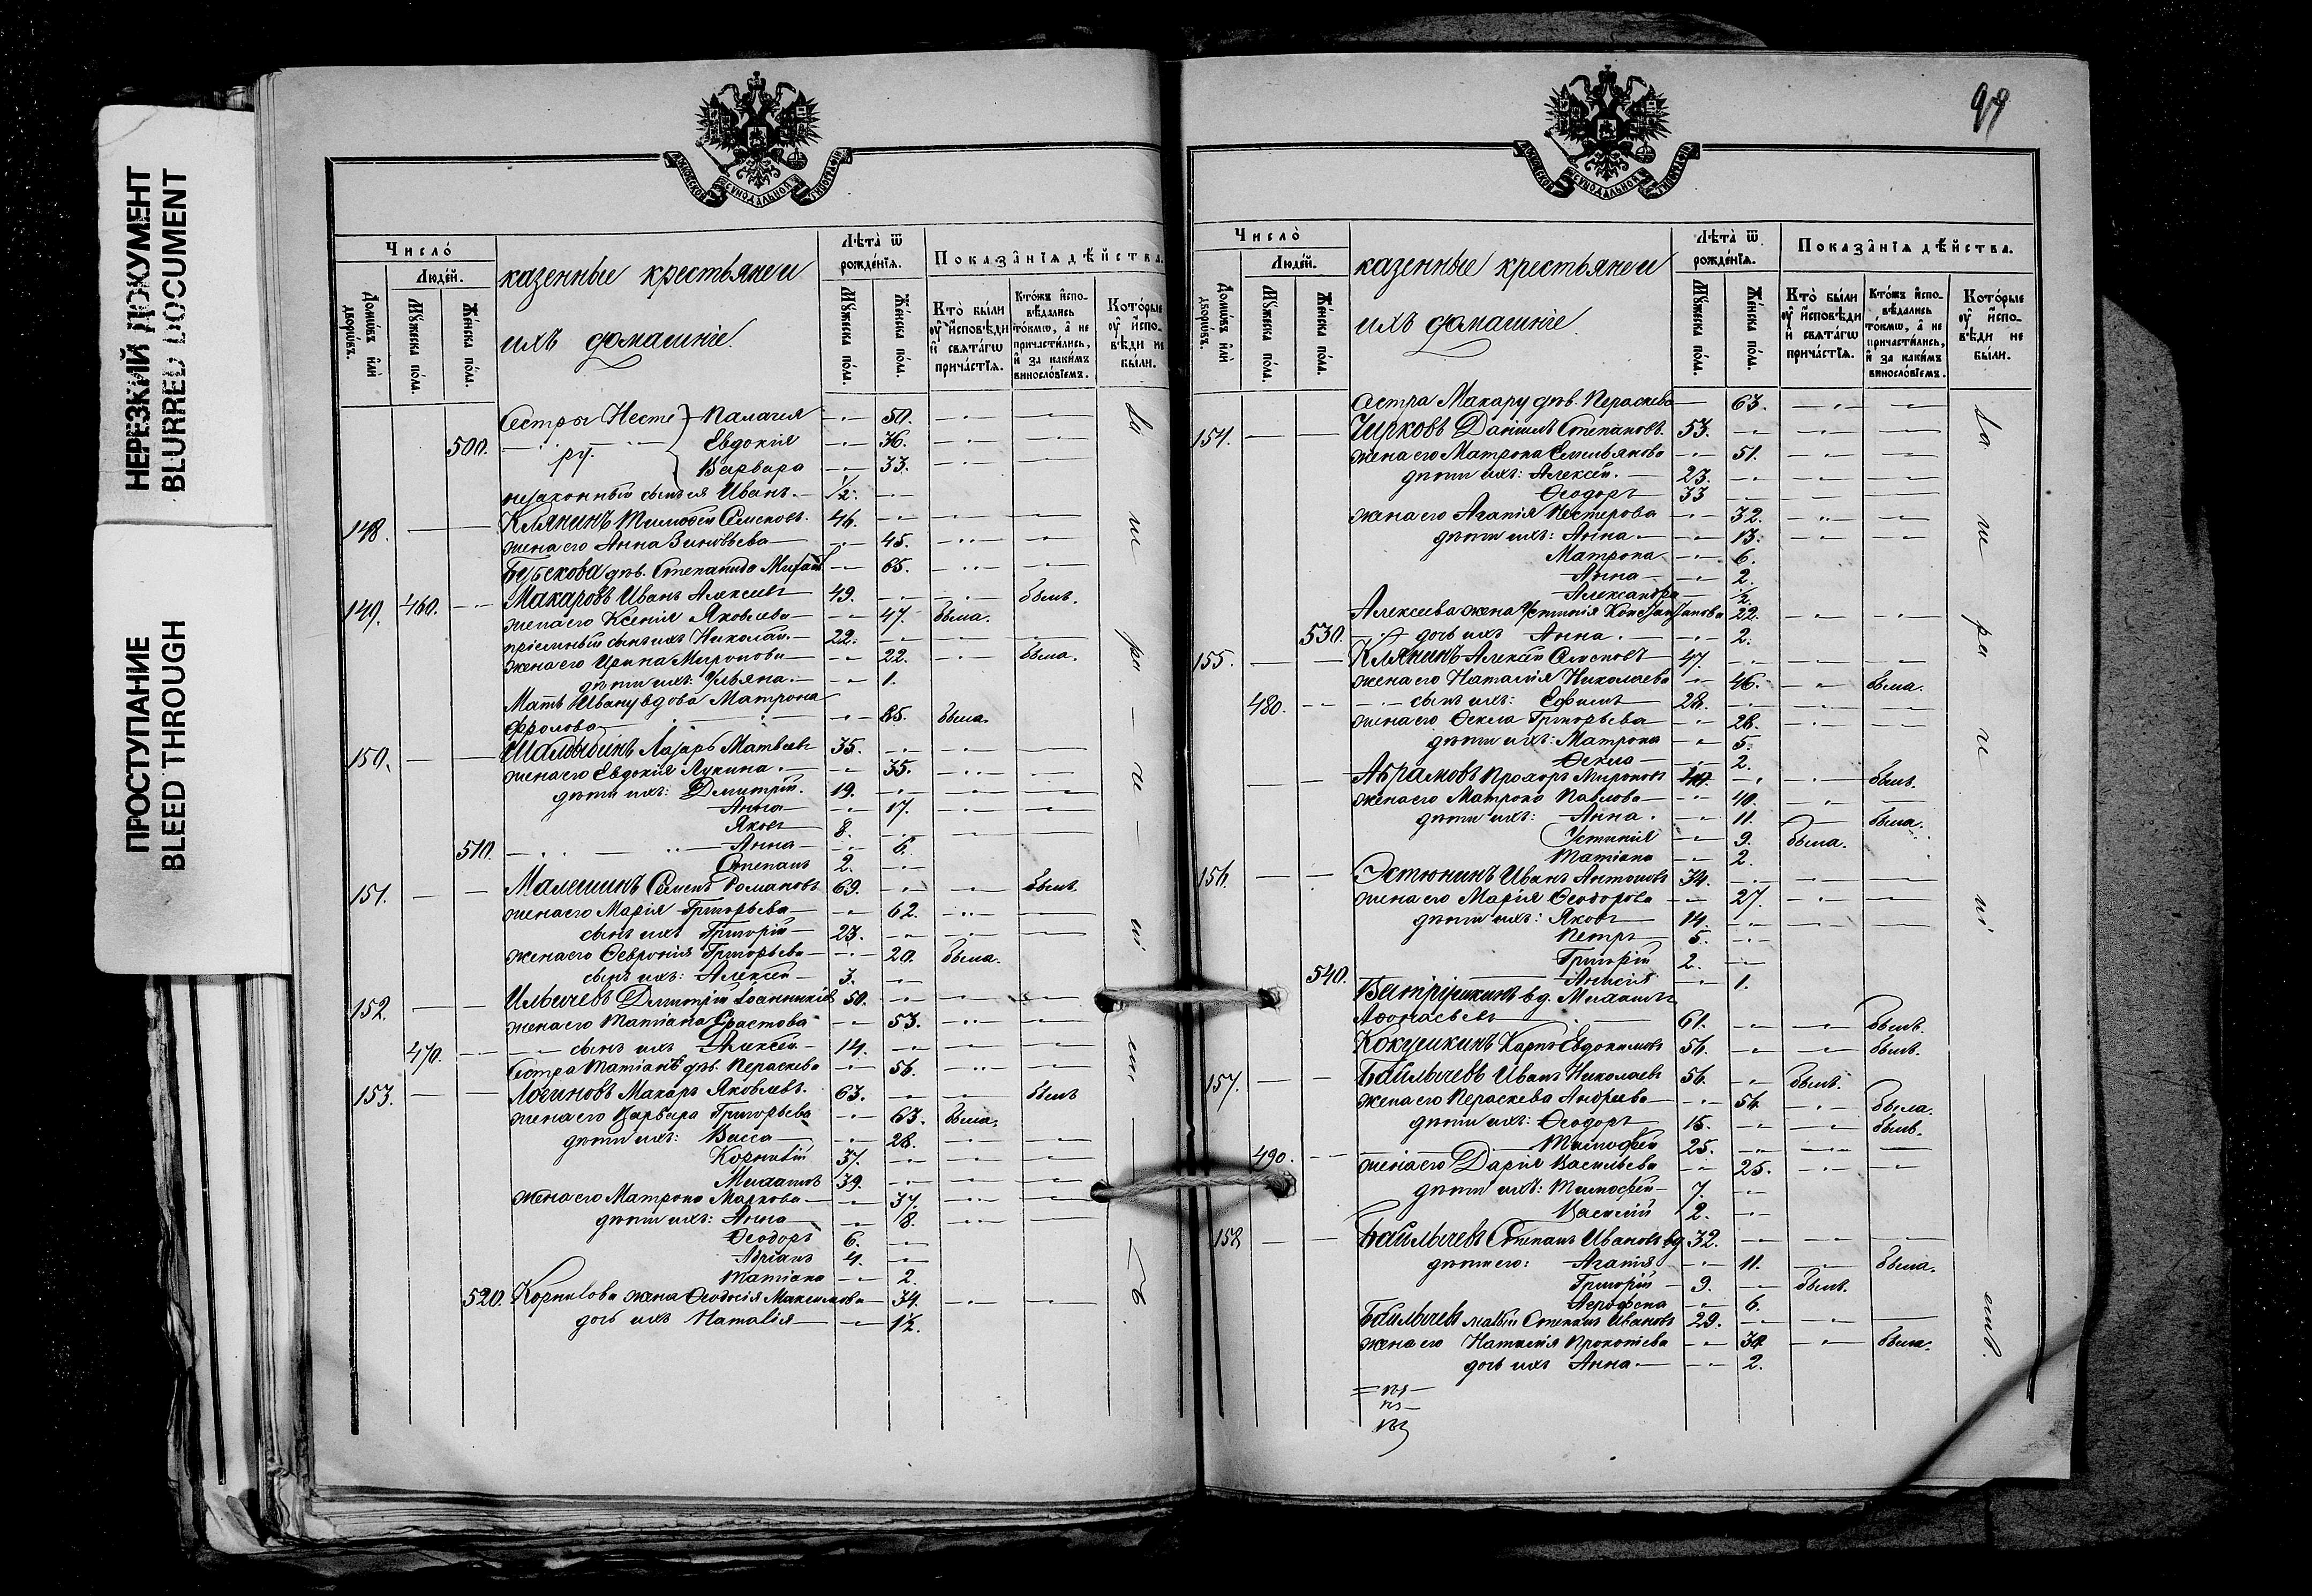 НЕРЕЗКИЙ ДОКУМЕНТ
BLURRED DOCUMENT
ПРОСТУПАНИЕ
BLEED THROUGH
Число́
Людей.
Домѡвъ или дворѡвъ.
Мꙋжеска пола.
Женска пола.
казенные крестьяне и
ихъ домашніе.
Лѣта ѿ рожденїѧ.
Мꙋжеска пола.
Женска пола.
Показанїѧ дѣйства.
Кто были ᲂу исповѣди и свѧтагѡ причастїѧ.
Ктожъ исповѣдались токмѡ, а не причастились, и за какимъ винословїемъ.
Которые ᲂу исповѣди не были.
Сестры Несте- Палагея 50.
500. ру. Евдокія 36.
Варвара 33.
незаконный сынъ ея Иванъ. 1/2.
148. Клянинъ Тимофей Семеновъ. 46.
жена его Анна Зиновьева 45.
дѣв. Степанида 65.
149. 460. Макаровъ Иванъ Алексеевъ 49. былъ.
жена его Ксенія Яковлева 47. была.
пріемный сынъ ихъ Николай. 22.
жена его Ирина Миронова 22. была.
дѣти ихъ: Ульяна. 1.
Мать Ивану вдова Матрона
Фролова 85. была.
150. Шалыбинъ Лазарь Матвеевъ 35.
жена его Евдокія Лукина. 35.
дѣти ихъ: Дмитрій. 19.
Анна 17.
Яковъ 8.
510. Анна 6.
Степанъ 2.
151. Малешинъ Семенъ Романовъ 69. былъ.
жена его Марія Григорьева 62.
сынъ ихъ Григорій 23.
жена его Феврония Григорьева 20. была.
сынъ ихъ: Алексей 3.
152. Ильичевъ Димитрій Іоанникіевъ 50.
жена его Татіана Ерастова 53.
470. сынъ ихъ Алексей 14.
Сестра Татіанѣ дѣв. Параскева 56.
153. Логиновъ Макаръ Яковлевъ. 63. былъ
жена его Варвара Григорьева 63. была.
дѣти ихъ: Васса 28.
Корнилій 37.
Михаилъ 39.
жена его Матрона Маркова 37.
дѣти ихъ: Анна 8.
Ѳеодоръ 6.
Адріанъ 4.
Татіана 2.
520. Корнилова жена Ѳеодосія Максимова 34.
дочь ихъ Наталія 1 1/2.
Число́
Людей.
Домѡвъ или дворѡвъ.
Мꙋжеска пола.
Женска пола.
казенные крестьяне и
ихъ домашніе.
Лѣта ѿ рожденїѧ.
Мꙋжеска пола.
Женска пола.
Показанїѧ дѣйства.
Кто были ᲂу исповѣди и свѧтагѡ причастїѧ.
Ктожъ исповѣдались токмѡ, а не причастились, и за какимъ винословїемъ.
Которые ᲂу исповѣди не были.
Сестра Макару дѣв. Параскева 63.
154. Чирковъ Даніилъ Степановъ. 53.
жена его Матрона Емельянова 51.
дѣти ихъ: Алексей. 23.
Ѳеодоръ 33
жена его Агапія Нестерова 32.
дѣти ихъ: Анна 13.
Матрона 6.
Анна 2.
Александра 1/2.
Алексеева жена Устинія Константинова 22.
530. дочь ихъ Анна. 2.
155. Клянинъ Алексей Семеновъ 47.
жена его Наталія Николаева 46. была.
480. сынъ ихъ: Ефимъ 28.
жена его Ѳекла Григорьева 28.
дѣти ихъ: Матрона 5.
Ѳекла 2.
Абрамовъ Прохоръ Мироновъ былъ.
жена его Матрона Павлова 40.
дѣти ихъ: Анна. 11. была.
Устинія 9. была.
Татіана 2.
156. Эстюнинъ Иванъ Антоновъ 34.
жена его Марія Ѳеодорова 27.
дѣти ихъ: Яковъ 14.
Петръ 5.
Григорій 2.
540. Анисія 1.
вд. Михаилъ
Аѳонасьевъ 61. былъ.
Кокушкинъ Карпъ Евдокимовъ 56. былъ.
157. Байлычевъ Иванъ Николаевъ 56. былъ.
жена его Параскева Андреева 56. была.
дѣти ихъ: Ѳеодоръ 15. былъ.
490. Тимофей 25.
жена его Дарія Васильева 25.
дѣти ихъ: Тимофей 7.
Василій 2.
158 Байлычевъ Степанъ Ивановъ вд 32.
дѣти его: Агапія 11. была.
Григорій 9. былъ.
Агрофена 6.
Байлычевъ малый Степанъ Ивановъ 29.
жена его Наталія Прокопьева 30. была.
дочь ихъ Анна 2.